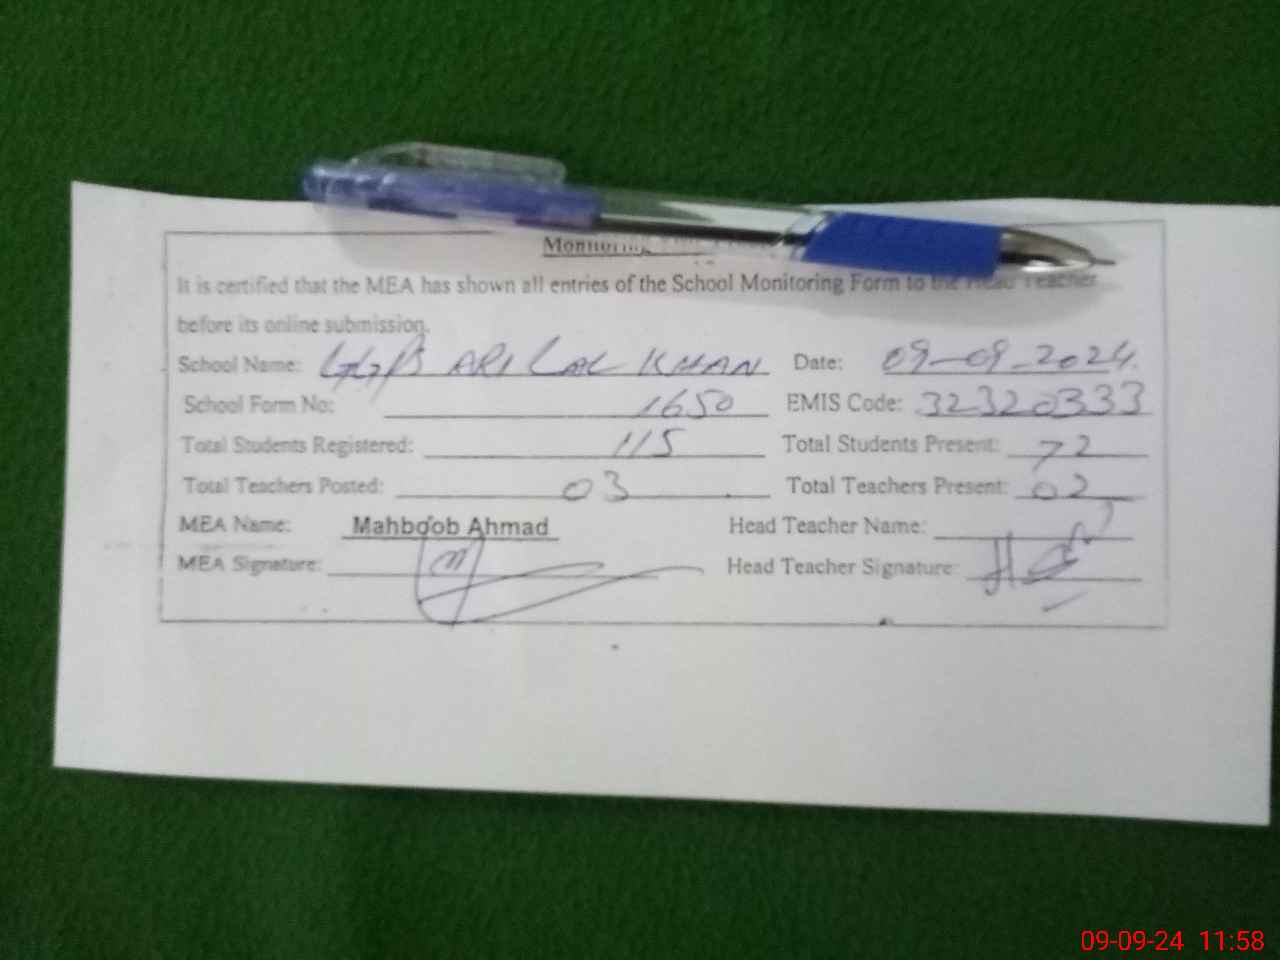 It is certified that the MEA has shown all entries of the School Monitoring Form to the Head Teacher
before its online submission.
School Name: GGPS ARI LAL KHAN Date: 09-09-2024.
School Form No: 1650 EMIS Code: 32320333
Total Students Registered: 115 Total Students Present: 72
Total Teachers Posted: 03 Total Teachers Present: 02
MEA Name: Mahboob Ahmad Head Teacher Name:
MEA Signature: Head Teacher Signature:
09-09-24 11:58